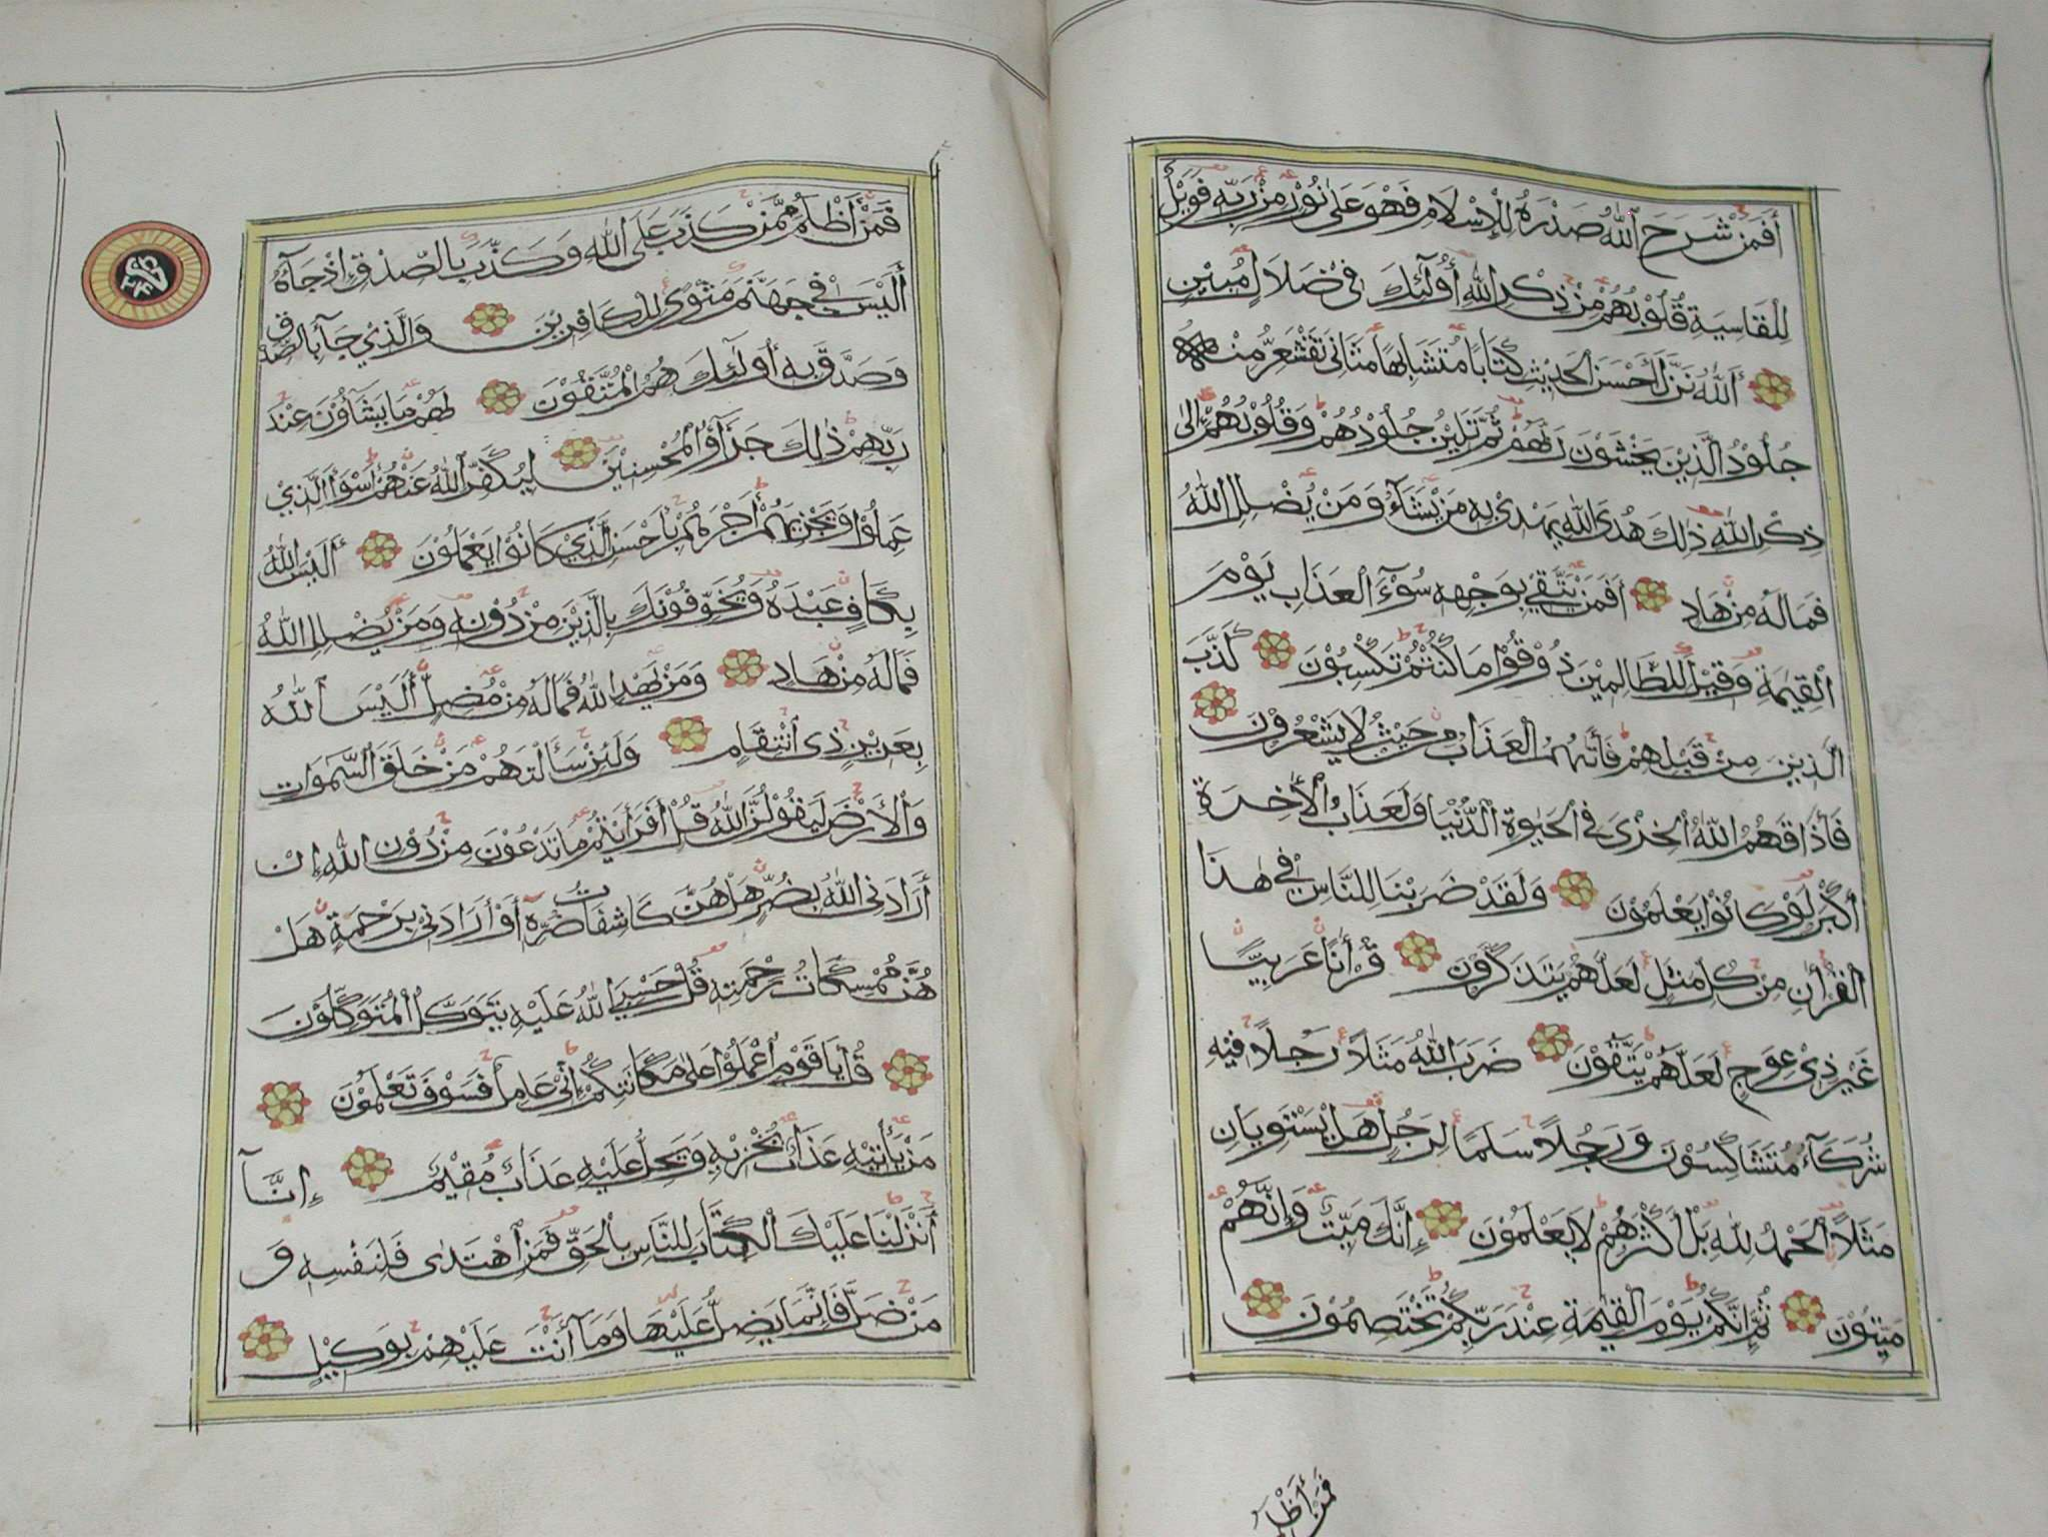 أَفَمَنْ شَرَحَ ٱللَّهُ صَدْرَهُ لِلْإِسْلَامِ فَهُوَ عَلَىٰ نُوْرٍ مِنْ رَبِّهِ فَوَيْلٌ
لِلْقَاسِيَةِ قُلُوْبُهُمْ مِنْ ذِكْرِ اللَّهِ أُوْلَٰٓئِكَ فِيْ ضَلَالٍ مُبِيْنٍ
أَللَّهُ نَزَّلَ أَحْسَنَ الْحَدِيْثِ كِتَابًا مُتَشَابِهًا مَثَانِيَ تَقْشَعِرُّ مِنْهُ
جُلُوْدُ الَّذِيْنَ يَخْشَوْنَ رَبَّهُمْ ثُمَّ تَلِيْنُ جُلُوْدُهُمْ وَقُلُوْبُهُمْ إِلَىٰ
ذِكْرِ اللَّهِ ذَٰلِكَ هُدَى اللَّهِ يَهْدِيْ بِهِ مَنْ يَشَآءُ وَمَنْ يُضْلِلِ اللَّهُ
فَمَا لَهُ مِنْ هَادٍ أَفَمَنْ يَتَّقِيْ بِوَجْهِهِ سُوْٓءَ الْعَذَابِ يَوْمَ
الْقِيٰمَةِ وَقِيْلَ لِلظَّالِمِيْنَ ذُوْقُوْا مَا كُنْتُمْ تَكْسِبُوْنَ كَذَّبَ
الَّذِيْنَ مِنْ قَبْلِهِمْ فَأَتَٰهُمُ الْعَذَابُ مِنْ حَيْثُ لَا يَشْعُرُوْنَ
فَأَذَاقَهُمُ اللَّهُ الْخِزْيَ فِي الْحَيٰوةِ الدُّنْيَا وَلَعَذَابُ الْأٰخِرَةِ
أَكْبَرُ لَوْ كَانُوْا يَعْلَمُوْنَ وَلَقَدْ ضَرَبْنَا لِلنَّاسِ فِيْ هٰذَا
الْقُرْأٰنِ مِنْ كُلِّ مَثَلٍ لَعَلَّهُمْ يَتَذَكَّرُوْنَ قُرْأٰنًا عَرَبِيًّا
غَيْرَ ذِيْ عِوَجٍ لَعَلَّهُمْ يَتَّقُوْنَ ضَرَبَ اللَّهُ مَثَلًا رَجُلًا فِيْهِ
شُرَكَآءُ مُتَشَاكِسُوْنَ وَرَجُلًا سَلَمًا لِرَجُلٍ هَلْ يَسْتَوِيَانِ
مَثَلًا الْحَمْدُ لِلَّهِ بَلْ أَكْثَرُهُمْ لَا يَعْلَمُوْنَ إِنَّكَ مَيِّتٌ وَإِنَّهُمْ
مَيِّتُوْنَ ثُمَّ إِنَّكُمْ يَوْمَ الْقِيٰمَةِ عِنْدَ رَبِّكُمْ تَخْتَصِمُوْنَ
فَمَنْ أَظْلَمُ
فَمَنْ أَظْلَمُ مِمَّنْ كَذَبَ عَلَى اللَّهِ وَكَذَّبَ بِالصِّدْقِ إِذْ جَآءَهُ
أَلَيْسَ فِيْ جَهَنَّمَ مَثْوًى لِلْكَافِرِيْنَ وَالَّذِيْ جَآءَ بِالصِّدْقِ
وَصَدَّقَ بِهِ أُولَٰٓئِكَ هُمُ الْمُتَّقُوْنَ لَهُمْ مَا يَشَآؤُنَ عِنْدَ
رَبِّهِمْ ذَٰلِكَ جَزَآؤُ الْمُحْسِنِيْنَ لِيُكَفِّرَ اللَّهُ عَنْهُمْ أَسْوَأَ الَّذِيْ
عَمِلُوْا وَيَجْزِيَهُمْ أَجْرَهُمْ بِأَحْسَنِ الَّذِيْ كَانُوْا يَعْمَلُوْنَ أَلَيْسَ اللَّهُ
بِكَافٍ عَبْدَهُ وَيُخَوِّفُوْنَكَ بِالَّذِيْنَ مِنْ دُوْنِهِ وَمَنْ يُضْلِلِ اللَّهُ
فَمَا لَهُ مِنْ هَادٍ وَمَنْ يَهْدِ اللَّهُ فَمَا لَهُ مِنْ مُضِلٍّ أَلَيْسَ ٱللَّهُ
بِعَزِيْزٍ ذِي ٱنْتِقَامٍ وَلَئِنْ سَأَلْتَهُمْ مَنْ خَلَقَ السَّمٰوَاتِ
وَالْأَرْضَ لَيَقُوْلُنَّ اللَّهُ قُلْ أَفَرَأَيْتُمْ مَا تَدْعُوْنَ مِنْ دُوْنِ اللَّهِ إِنْ
أَرَادَنِيَ اللَّهُ بِضُرٍّ هَلْ هُنَّ كَاشِفَاتُ ضُرِّهِ أَوْ أَرَادَنِيْ بِرَحْمَةٍ هَلْ
هُنَّ مُمْسِكَاتُ رَحْمَتِهِ قُلْ حَسْبِيَ اللَّهُ عَلَيْهِ يَتَوَكَّلُ الْمُتَوَكِّلُوْنَ
قُلْ يَا قَوْمِ اعْمَلُوْا عَلَىٰ مَكَانَتِكُمْ إِنِّيْ عَامِلٌ فَسَوْفَ تَعْلَمُوْنَ
مَنْ يَأْتِيْهِ عَذَابٌ يُخْزِيْهِ وَيَحِلُّ عَلَيْهِ عَذَابٌ مُقِيْمٌ إِنَّآ
أَنْزَلْنَا عَلَيْكَ الْكِتَابَ لِلنَّاسِ بِالْحَقِّ فَمَنِ اهْتَدٰى فَلِنَفْسِهِ وَ
مَنْ ضَلَّ فَإِنَّمَا يَضِلُّ عَلَيْهَا وَمَآ أَنْتَ عَلَيْهِمْ بِوَكِيْلٍ